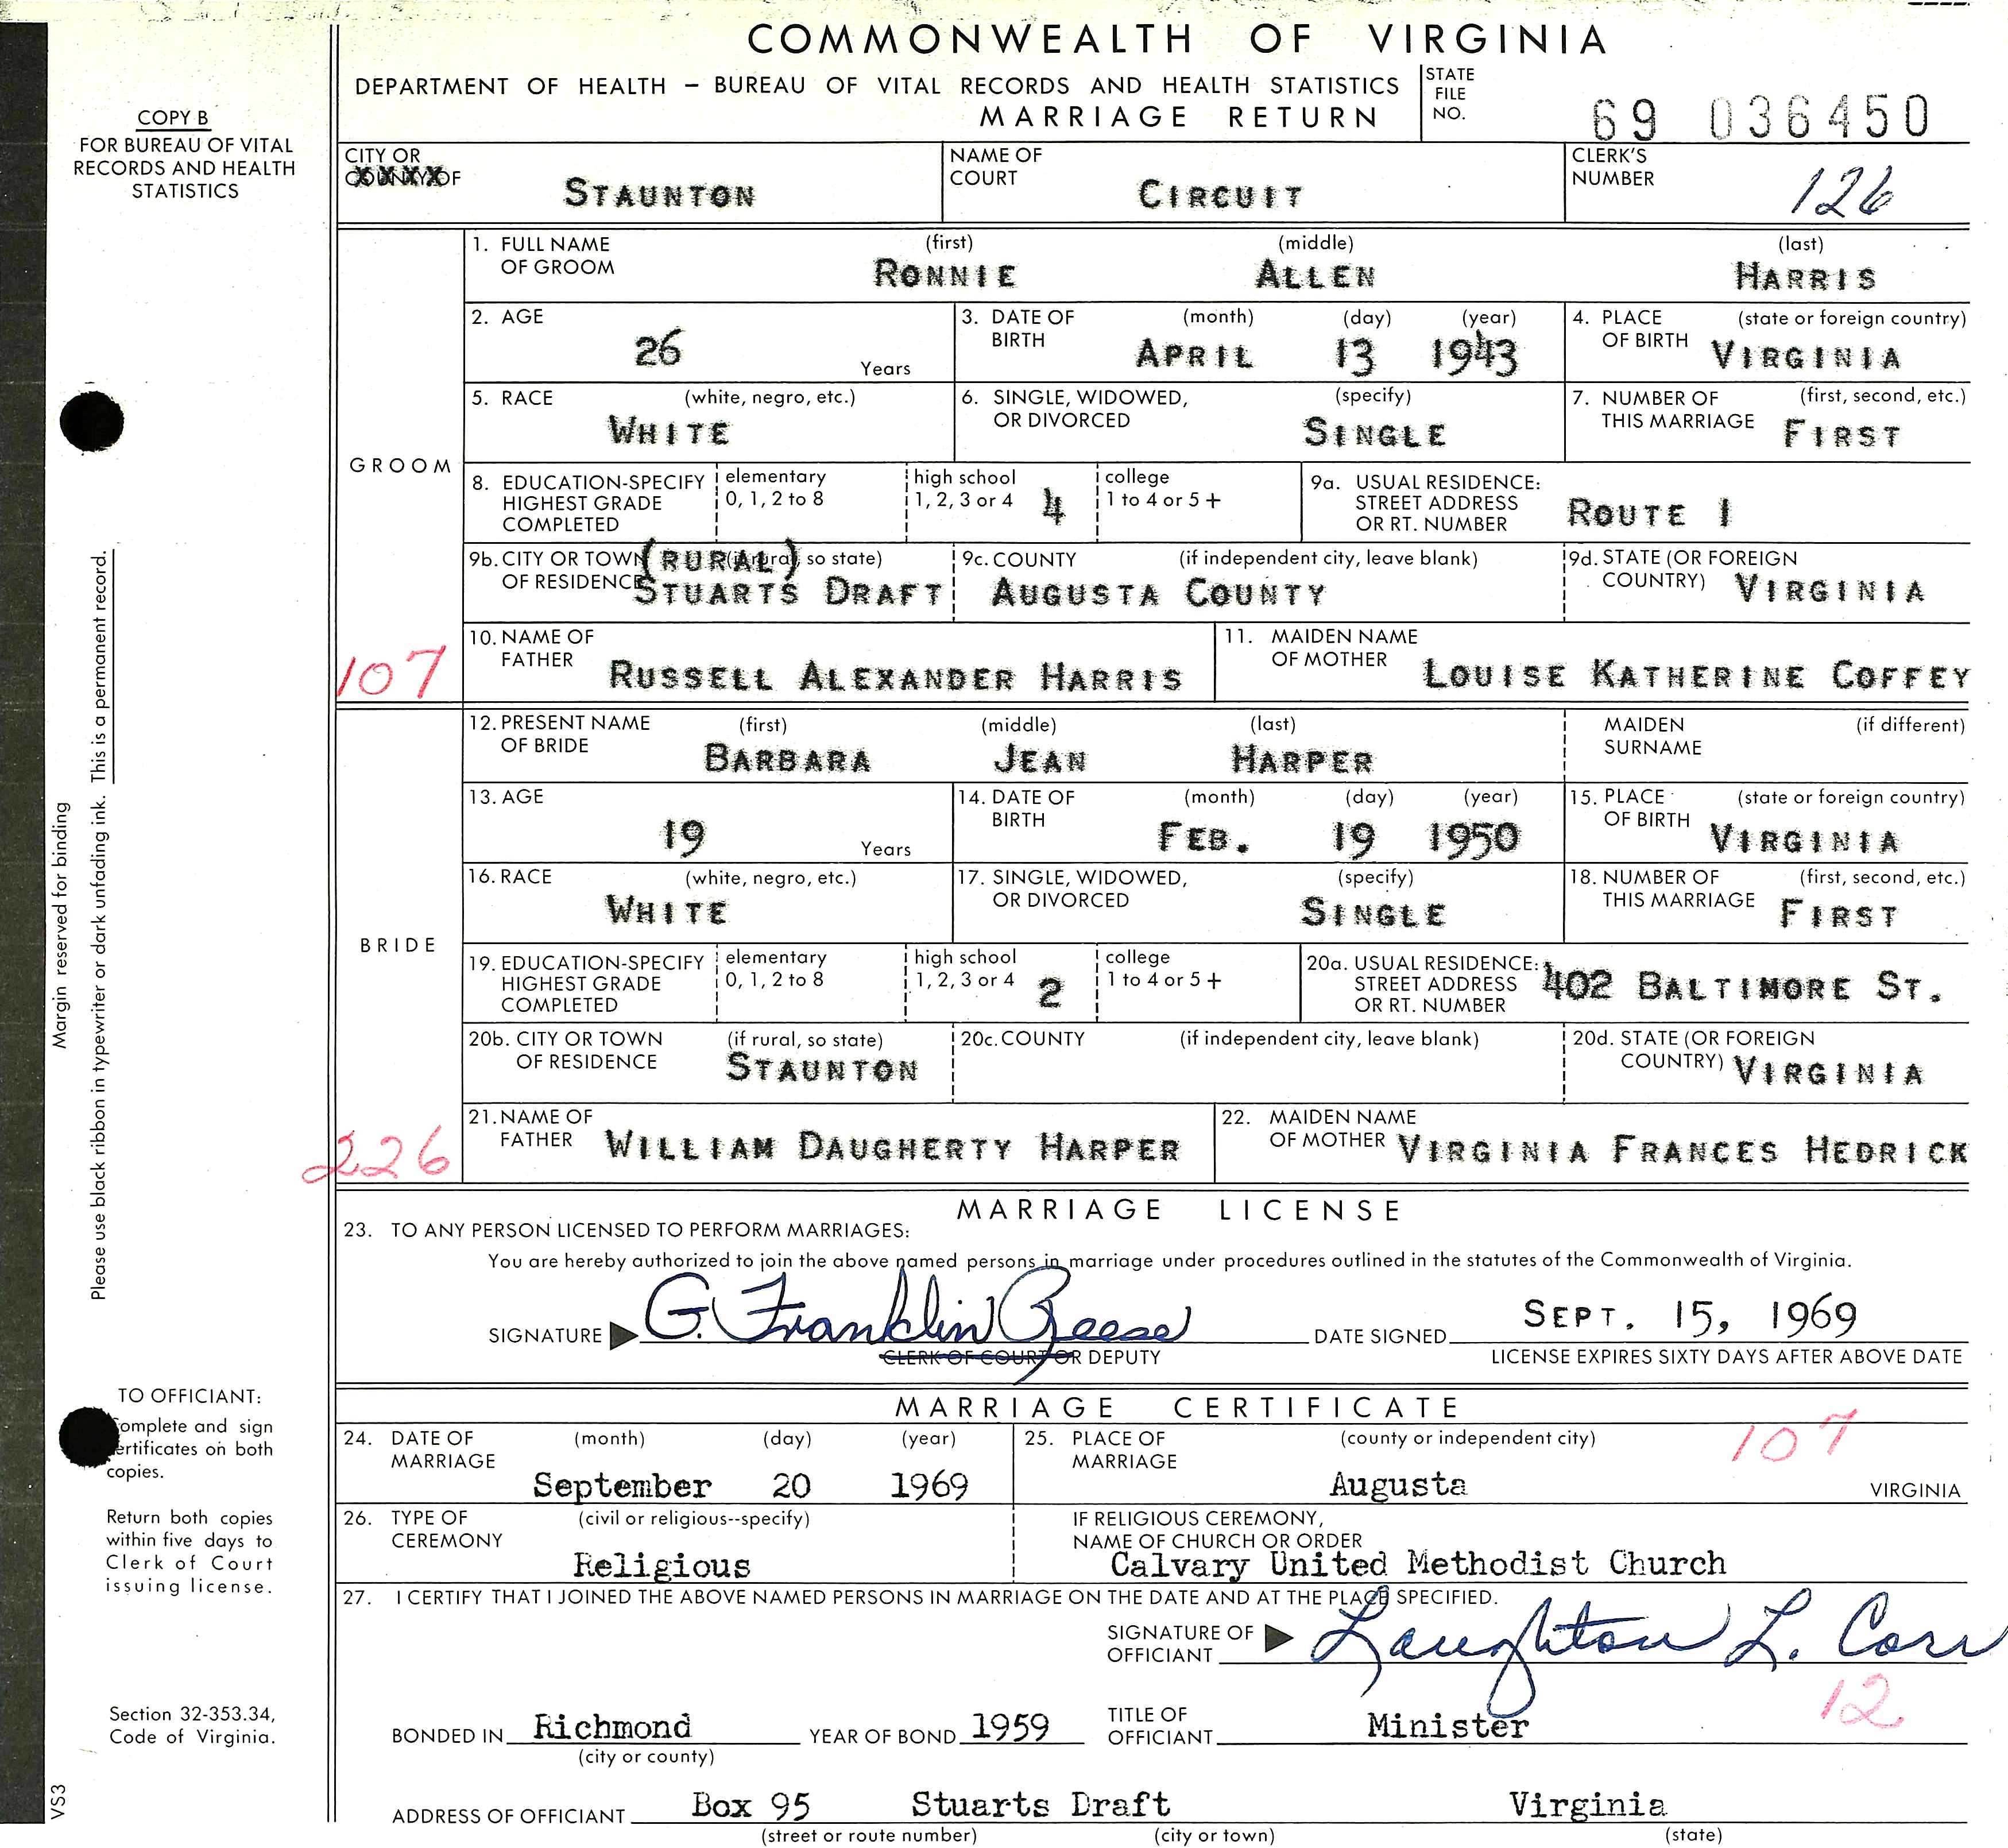 COMMONWEALTH OF VIRGINIA
DEPARTMENT OF HEALTH – BUREAU OF VITAL RECORDS AND HEALTH STATISTICS
MARRIAGE RETURN
STATE FILE NO. 69 036450
COPY B
FOR BUREAU OF VITAL
RECORDS AND HEALTH
STATISTICS
CITY OR COUNTY OF STAUNTON
NAME OF COURT CIRCUIT
CLERK'S NUMBER 126
GROOM
1. FULL NAME OF GROOM (first) RONNIE (middle) ALLEN (last) HARRIS
2. AGE 26 Years
3. DATE OF BIRTH (month) APRIL (day) 13 (year) 1943
4. PLACE OF BIRTH (state or foreign country) VIRGINIA
5. RACE (white, negro, etc.) WHITE
6. SINGLE, WIDOWED, OR DIVORCED (specify) SINGLE
7. NUMBER OF THIS MARRIAGE (first, second, etc.) FIRST
8. EDUCATION-SPECIFY HIGHEST GRADE COMPLETED
elementary 0, 1, 2 to 8
high school 1, 2, 3 or 4 4
college 1 to 4 or 5 +
9a. USUAL RESIDENCE: STREET ADDRESS OR RT. NUMBER ROUTE 1
9b. CITY OR TOWN OF RESIDENCE (if rural, so state) (RURAL) STUARTS DRAFT
9c. COUNTY (if independent city, leave blank) AUGUSTA COUNTY
9d. STATE (OR FOREIGN COUNTRY) VIRGINIA
10. NAME OF FATHER RUSSELL ALEXANDER HARRIS
11. MAIDEN NAME OF MOTHER LOUISE KATHERINE COFFEY
107
BRIDE
12. PRESENT NAME OF BRIDE (first) BARBARA (middle) JEAN (last) HARPER
MAIDEN SURNAME (if different)
13. AGE 19 Years
14. DATE OF BIRTH (month) FEB. (day) 19 (year) 1950
15. PLACE OF BIRTH (state or foreign country) VIRGINIA
16. RACE (white, negro, etc.) WHITE
17. SINGLE, WIDOWED, OR DIVORCED (specify) SINGLE
18. NUMBER OF THIS MARRIAGE (first, second, etc.) FIRST
19. EDUCATION-SPECIFY HIGHEST GRADE COMPLETED
elementary 0, 1, 2 to 8
high school 1, 2, 3 or 4 2
college 1 to 4 or 5 +
20a. USUAL RESIDENCE: STREET ADDRESS OR RT. NUMBER 402 BALTIMORE ST.
20b. CITY OR TOWN OF RESIDENCE (if rural, so state) STAUNTON
20c. COUNTY (if independent city, leave blank)
20d. STATE (OR FOREIGN COUNTRY) VIRGINIA
21. NAME OF FATHER WILLIAM DAUGHERTY HARPER
22. MAIDEN NAME OF MOTHER VIRGINIA FRANCES HEDRICK
226
Margin reserved for binding
Please use black ribbon in typewriter or dark unfading ink. This is a permanent record.
MARRIAGE LICENSE
23. TO ANY PERSON LICENSED TO PERFORM MARRIAGES:
You are hereby authorized to join the above named persons in marriage under procedures outlined in the statutes of the Commonwealth of Virginia.
SIGNATURE G. Franklin Reese DATE SIGNED SEPT. 15, 1969
CLERK OF COURT OR DEPUTY
LICENSE EXPIRES SIXTY DAYS AFTER ABOVE DATE
MARRIAGE CERTIFICATE
24. DATE OF MARRIAGE (month) September (day) 20 (year) 1969
25. PLACE OF MARRIAGE (county or independent city) Augusta VIRGINIA
107
26. TYPE OF CEREMONY (civil or religious--specify) Religious
IF RELIGIOUS CEREMONY, NAME OF CHURCH OR ORDER Calvary United Methodist Church
27. I CERTIFY THAT I JOINED THE ABOVE NAMED PERSONS IN MARRIAGE ON THE DATE AND AT THE PLACE SPECIFIED.
SIGNATURE OF OFFICIANT Laughton L. Corr
12
BONDED IN Richmond YEAR OF BOND 1959
(city or county)
TITLE OF OFFICIANT Minister
ADDRESS OF OFFICIANT Box 95 Stuarts Draft Virginia
(street or route number) (city or town) (state)
TO OFFICIANT:
Complete and sign
certificates on both
copies.
Return both copies
within five days to
Clerk of Court
issuing license.
Section 32-353.34,
Code of Virginia.
VS3